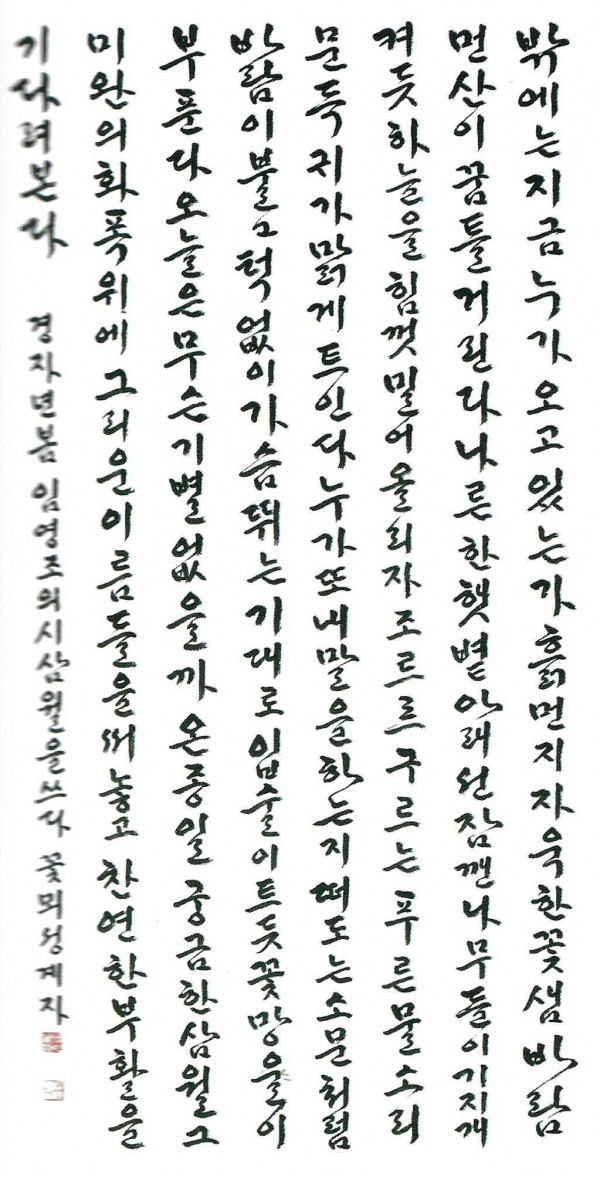 밖에는지금누가오고있는가흙먼지자욱한꽃샘바람
먼산이꿈틀거린다나른한햇볕아래선잠깬나무들이기지개
켜듯하늘을힘껏밀어올리자조르르구르는푸른물소리
문득귀가맑게트인다누가또내말을하는지떠도는소문처럼
바람이불고턱없이가슴뛰는기대로입술이트듯꽃망울이
부푼다오늘은무슨기별없을까온종일궁금한삼월그
미완의화폭위에그리운이름들을써놓고찬연한부활을
기다려본다 경자년봄 임영조의시삼월을쓰다 꽃뫼성계자